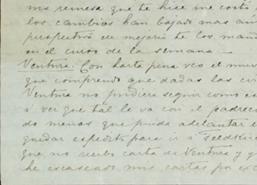 mi remesa que te hice me costó
los cambios han bajado mas aún
perspectiva de mejoría te los mand
en el curso de la semana —
Ventura. Con harta pena veo el
que comprendo que dadas las cir
Ventura no pudiese seguir como es
á ver que tal le va con el padre
do menos que pueda adelantar e
quedar expedito para ir á
que no recibo carta de Ventura y q
he escaseado mis cartas por es